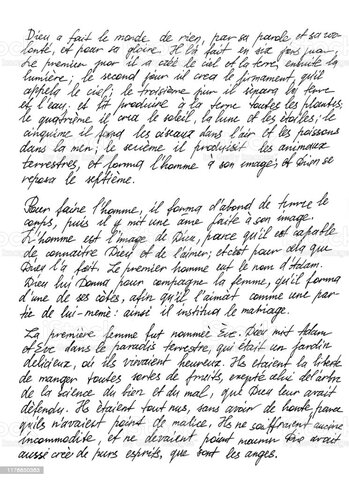 Dieu a fait le monde de rien, par sa parole et sa vo-
lonté, et pour sa gloire. Il l'a fait en six fons jour,
Le premier jour il a créé le ciel et la terre, ensuite la
lumière; le second jour il créa le firmament, qu'il
appela le ciel; le troisième jour il sépara la terre
et l'eau, et fit produire à la terre toutes les plantes;
le quatrième il créa le soleil, la lune et les étoiles; le
cinquime il fond les oiseaux dans l'air et les poissons
dans la mer; le sexième il produisit les animaux
terrestres, et forma l'homme à son image; et Dieu se
reposa le septième.
Pour faire l'homme, il forma d'abord de terre le
corps, puis il y mit une ame faite à son image.
L'homme est l'image de Dieu, parce qu'il est capable
de connaître Dieu et de l'aimer; et c'est pour cela que
Dieu l'a fait. Le premier homme eut le nom d'Adam.
Dieu lui donna pour compagne la femme, qu'il forma
d'une de ses côtes, afin qu'il l'aimât comme une par-
tie de lui-même: ainsi il institua le mariage.
La première femme fut nommée Eve. Dieu mit Adam
et Eve dans le paradis terrestre, qui était un jardin
délicieux, où ils vivaient heureux. Ils étaient la liberté
de manger toutes sortes de fruits, excepté celui de l'arbre
de la science du bien et du mal, que Dieu leur avait
défendu. Ils étaient tout nus, sans avoir de honte, parce
qu'ils n'avaient point de malice. Ils ne souffraient aucune
incommodité, et ne devaient point mourir. Dieu avait
aussi créé de purs esprits, que sont les anges.
1178650383